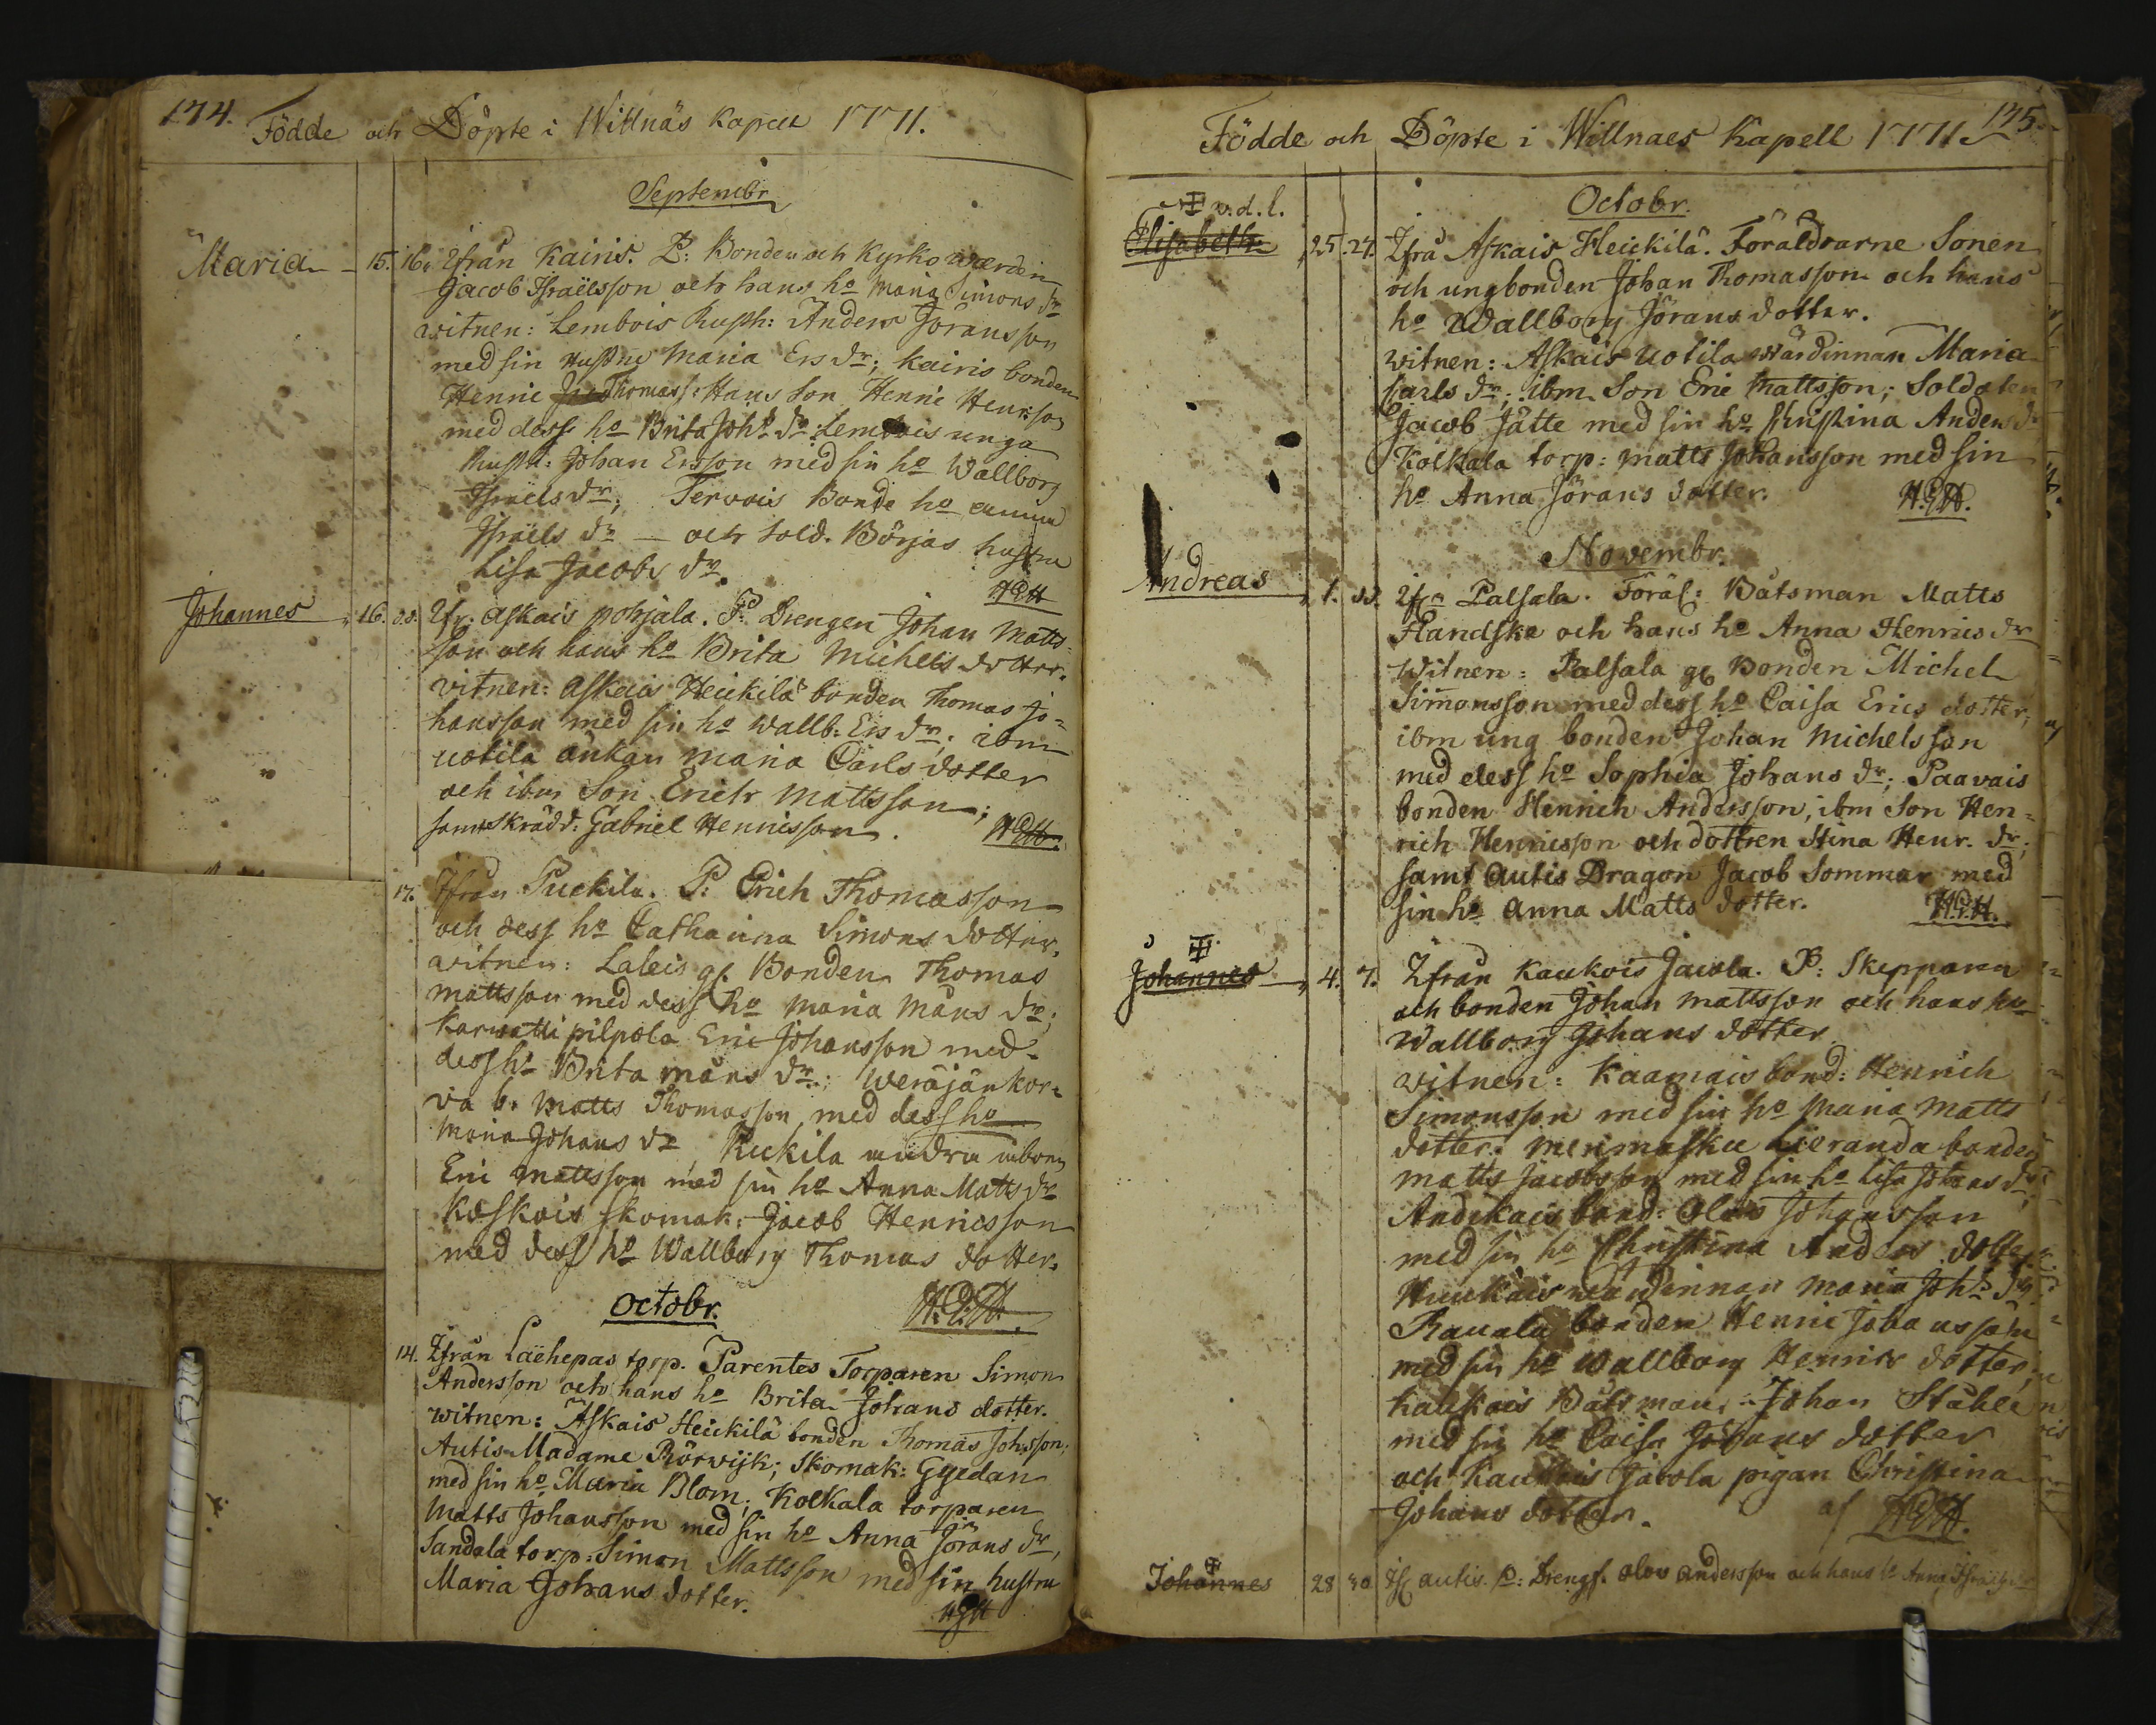 174.
Födde och Döpte i Willnäs Kapell 1771.
Septembr
Maria 15. 16. Ifrån Kairis. P: Bonden och Kyrko wærden
Jacob Israëlsson och hans ho Maria Simons dr
witnen: Lembois Rusth: Anders Joransson
med sin Hustru Maria Ers dr; Kairis bonden
Henric Thomass: Hans Son Henric Henrson
med dess ho Brita Johs dr: Lembois unga
Rusth: Johan Ersson med sin ho Wallborg
Israels dr; Tervois Bonde ho anna
Israëls dr — och Sold. Börjas hustru
Lisa Jacobs dr.
HGH
Johannes 16. d.s. Ifr. Askais pohjala. P: Drengen Johan Matts-
son och hans ho Brita Michels dotter.
vitnen: Askais Heickilä bonden Thomas Jo-
hansson med sin ho Wallb: Ers dr; ibm
uotila änkan Maria Carls dotter
och ibm Son Erich Mattsson;
samt Skrädd: Gabriel Henricsson.
HGH.
17. Ifrån Puckila. P: Erich Thomasson
och dess ho Catharina Simons dotter.
witnen: Laleis gl. Bonden Thomas
Mattsson med dess ho Maria Måns dr;
Karvatti pilpola Eric Johansson med
dess ho Brita Måns dr; Weräjänkor-
va b. Matts Thomasson med dess ho
Maria Johans dr Puckila andra inbon
Eric Mattsson med sin ho Anna Matts dr
Koskois skomak: Jacob Henricsson
med dess ho Wallborg Thomas dotter.
H.G.H.
Octobr.
14. Ifrån Laehepas torp. Parentes Torparen Simon
Andersson och hans ho Brita Johans dotter.
witnen: Askais Heickilä bonden Thomas Johsson;
Autis Madame Rörwijk; Skomak: Gyedan
med sin ho Maria Blom; Kolkala torparen
Matts Johansson med sin ho Anna Jörans dr,
Sandala torp: Simon Mattsson med sin hustru
Maria Johans dotter.
HGH
175.
Födde och Döpte i Willnaes Kapell 1771
Octobr.
v.d.l.
Elisabeth 25. 27. Ifrå Askais Heickilä. Föräldrarne Sonen
och ungbonden Johan Thomasson och hans
ho Wallborg Jörans dotter.
witnen: Askais Uotila Wärdinnan Maria
Carls dr; ibm Son Eric Mattsson; Soldaten
Jacob Jätte med sin ho Christina Anders dr
Kolkala torp: Matts Johansson med sin
ho Anna Jörans dotter.
H.G.H.
Novembr.
Andreas 1. d.s. Ifrå Palsala. Föräl: Båtsman Matts
Handske och hans ho Anna Henrics dr
witnen: Palsala gl Bonden Michel
Simonsson med dess ho Caisa Erics dotter,
ibm ung bonden Johan Michelsson
med dess ho Sophia Johans dr; Paavais
bonden Henrich Andersson, ibm Son Hen-
rich Henricsson och dottren Stina Henr. dr;
samt Autis Dragon Jacob Sommar med
sin ho Anna Matts dotter.
H.G.H.
Johannes 4. 7. Ifrån Kaukois Jacola. P: Skepparen
och bonden Johan Mattsson och hans ho
Wallborg Johans dotter
witnen: Kaamais bond: Henrich
Simonsson med sin ho Maria Matts
dotter. Merimasku Lieranda bonden
Matts Jacobsson med sin ho Lisa Johans dr;
Andikais bond: Olois Johansson
med sin ho Christina Anders dotter
wärdinnan Maria Johs dr;
Rauala bonden Henric Johansson
med sin ho Wallborg Henrics dotter,
Kaukois Båtsman Johan Ståhl
med sin ho Caisa Johans dotter
och Kaukois Jacola pigan Christina
Johans dotter.
af HGH.
Johannes 28 30 Ifr autis. P: Drengs. olov andersson och hans ho Anna Israëls dr